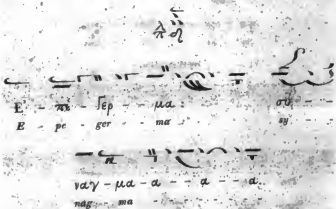 Ε - πε - Γερ - - μα : συ - -
E - pe ger - - ma sy - -
ναγ - μα - α - - α - - α.
nag - ma